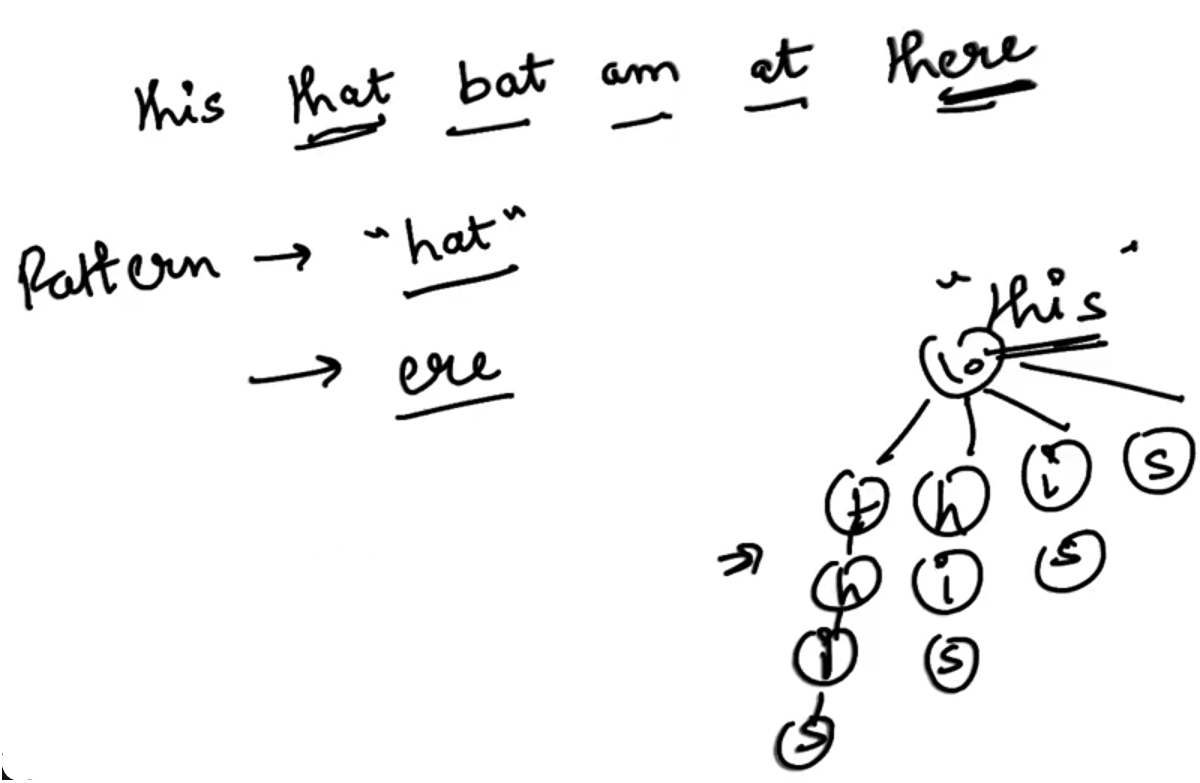 this that bat am at there
Pattern → "hat"
→ ere
"this"
\0
t h i s
h i s
i s
s